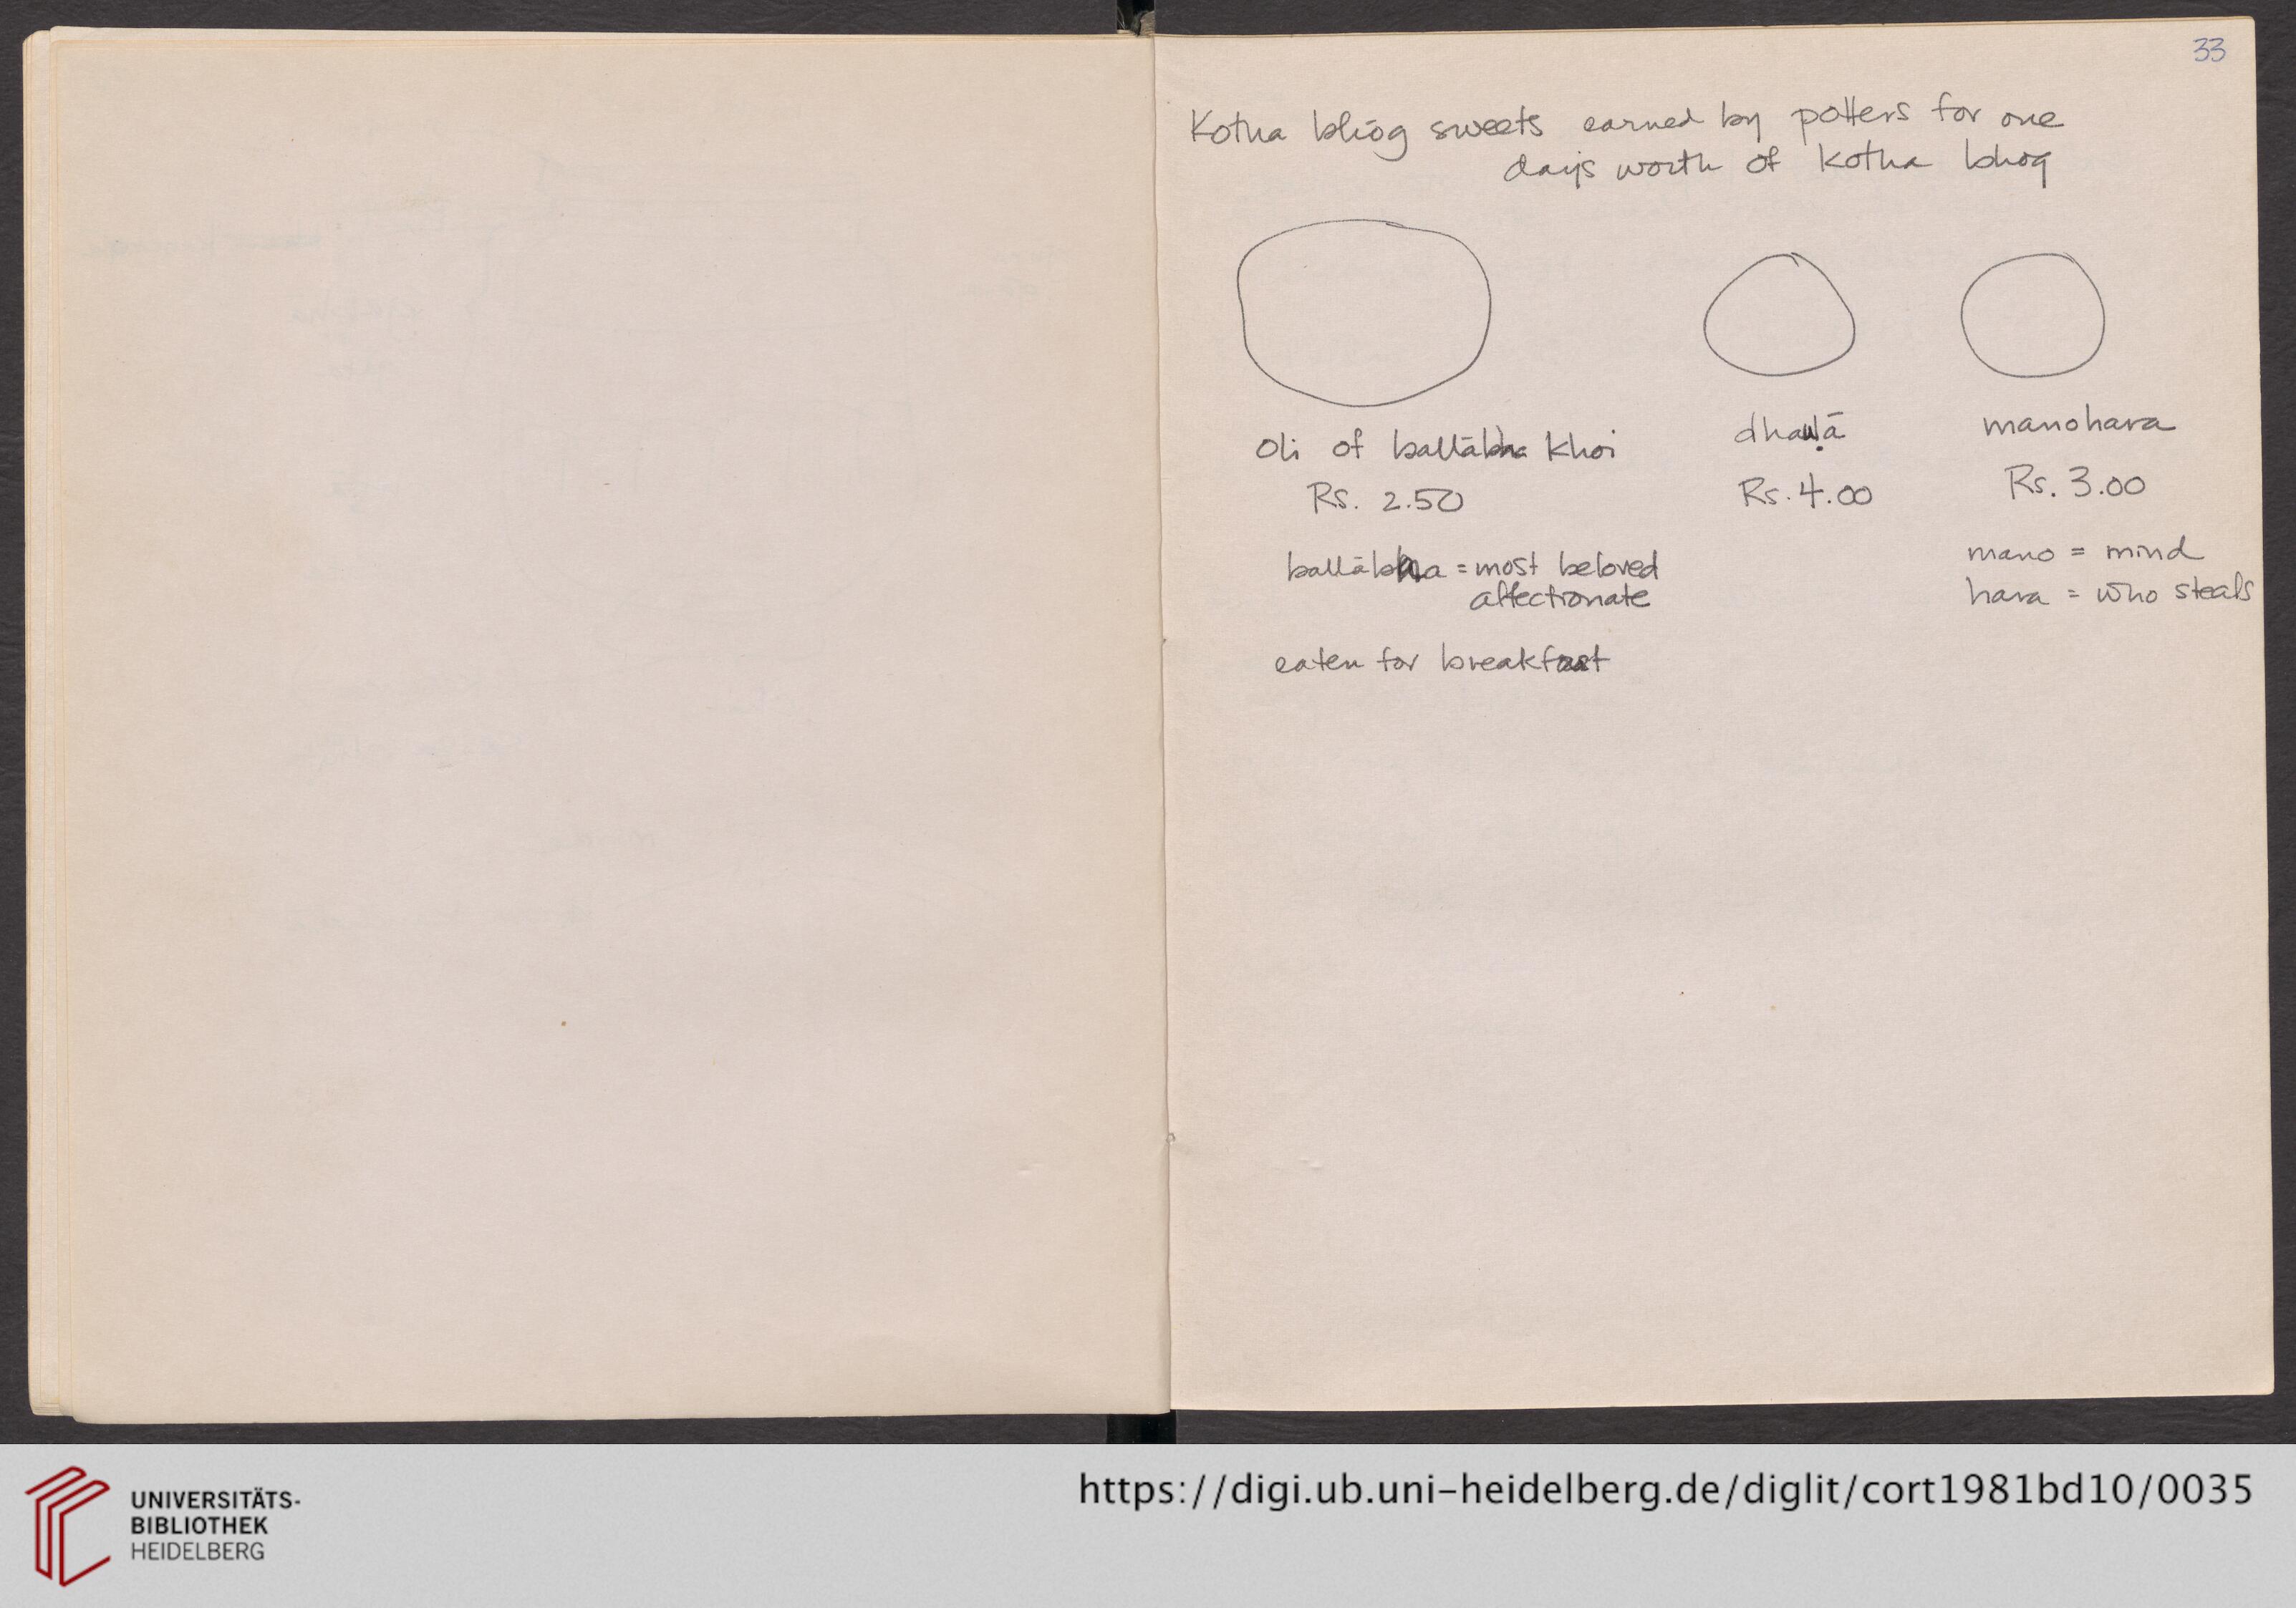 33
Kotha bhog sweets earned by potters for one
days worth of kotha bhog
Oli of ballābha khoi
Rs. 2.50
ballābha = most beloved
affectionate
eaten for breakfast
Rs. 4.00
manohara
Rs. 3.00
mano = mind
hara = who steals
UNIVERSITÄTS-
BIBLIOTHEK
HEIDELBERG
https://digi.ub.uni-heidelberg.de/diglit/cort1981bd10/0035